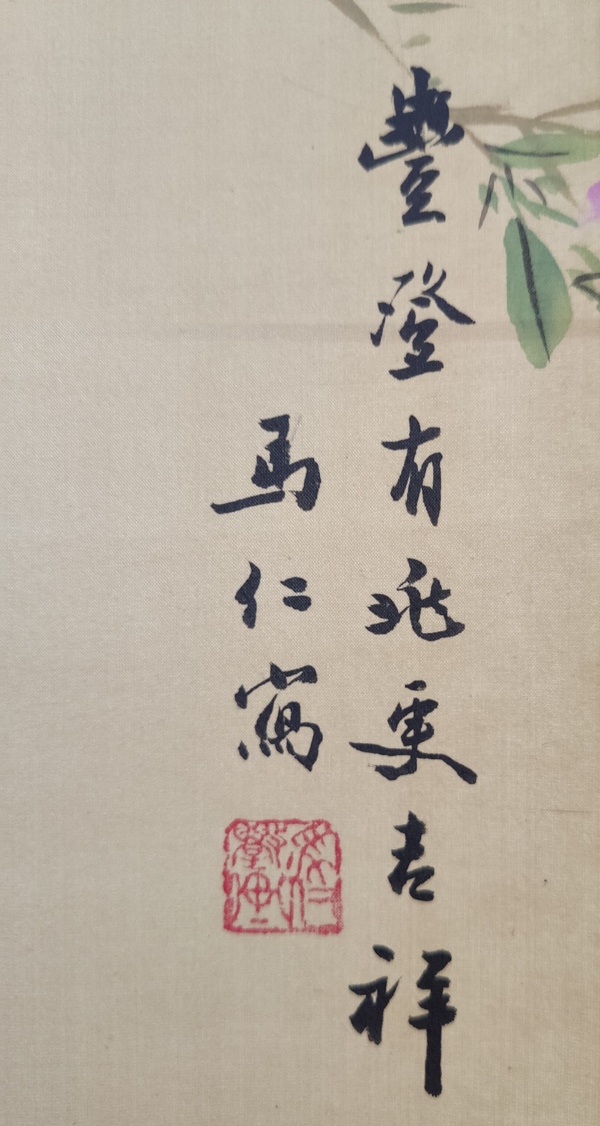 豐登有兆更吉祥
馬仁寫